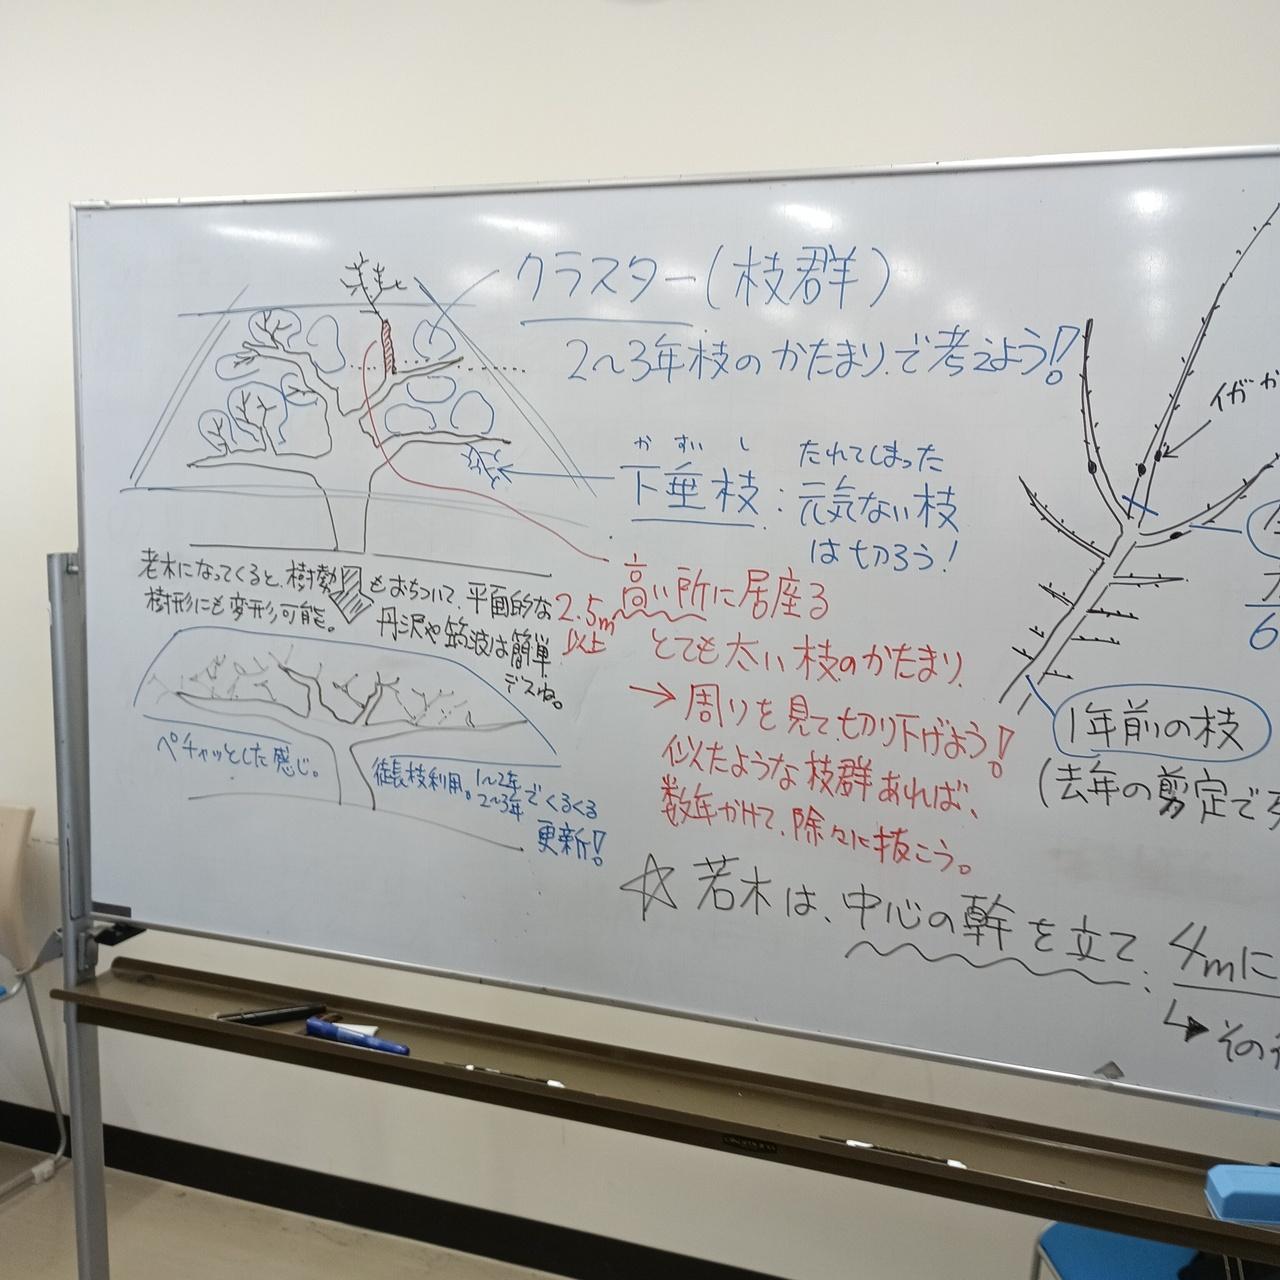 クラスター(枝群)
2〜3年枝のかたまりで考えよう!
か すい し
下垂枝:
たれてしまった
元気ない枝
は切ろう!
老木になってくると、樹勢もおちついて、平面的な
樹形にも変形可能。丹沢や筑波は簡単
デスね。
ペチャッとした感じ。
徒長枝利用。1〜2年
2〜3年でくるくる
更新!
2.5m
以上
高い所に居座る
とても太い枝のかたまり
→周りを見て、切り下げよう!
似たような枝群あれば、
数年かけて、除々に抜こう。
イガ
6
1年前の枝
(去年の剪定で
☆若木は、中心の幹を立て、4mに
↳その